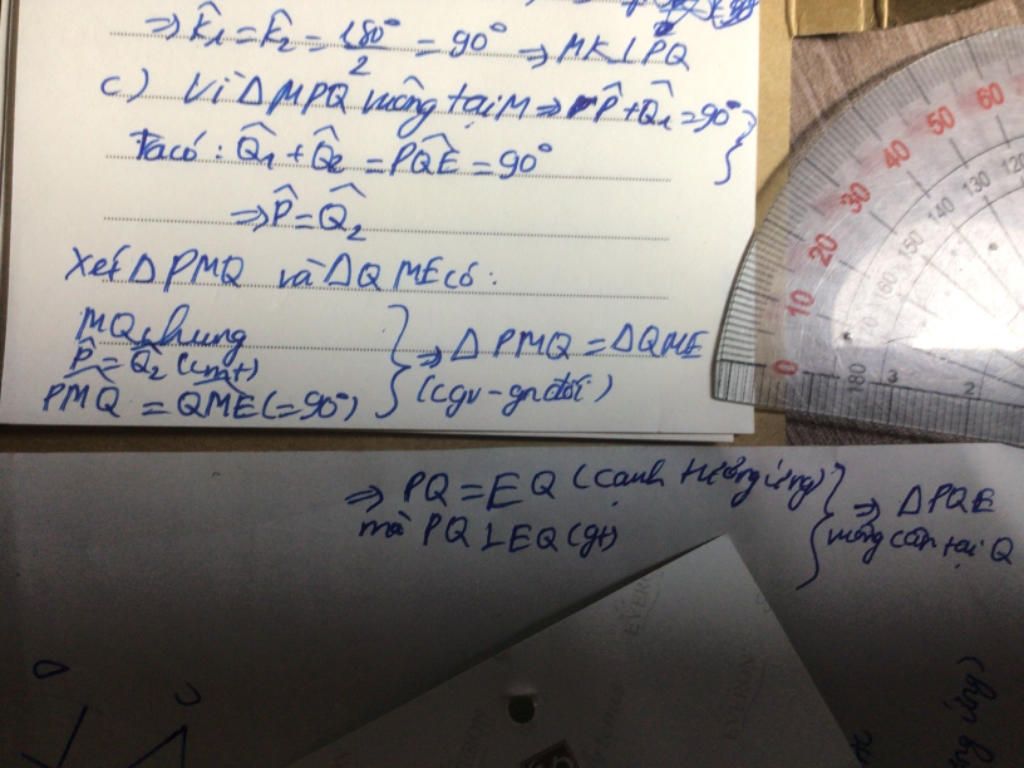 ⇒ K̂₁ = K̂₂ = 180°/2 = 90° ⇒ MK ⊥ PQ
c) Vì ΔMPQ vuông tại M ⇒ P̂ + Q̂₁ = 90°
Ta có : Q̂₁ + Q̂₂ = PQ̂E = 90°
⇒ P̂ = Q̂₂
Xét ΔPMQ và ΔQME có :
MQ chung
P̂ = Q̂₂ (cmt)
PM̂Q = QM̂E (= 90°)
⇒ ΔPMQ = ΔQME
(cgv - gn đối)
⇒ PQ = EQ (cạnh tương ứng)
mà PQ ⊥ EQ (gt)
⇒ ΔPQE
vuông cân tại Q
0 10 20 30 40 50 60
180 160 150 140 130 120
3 2
EVERON
EVERON
ứng)